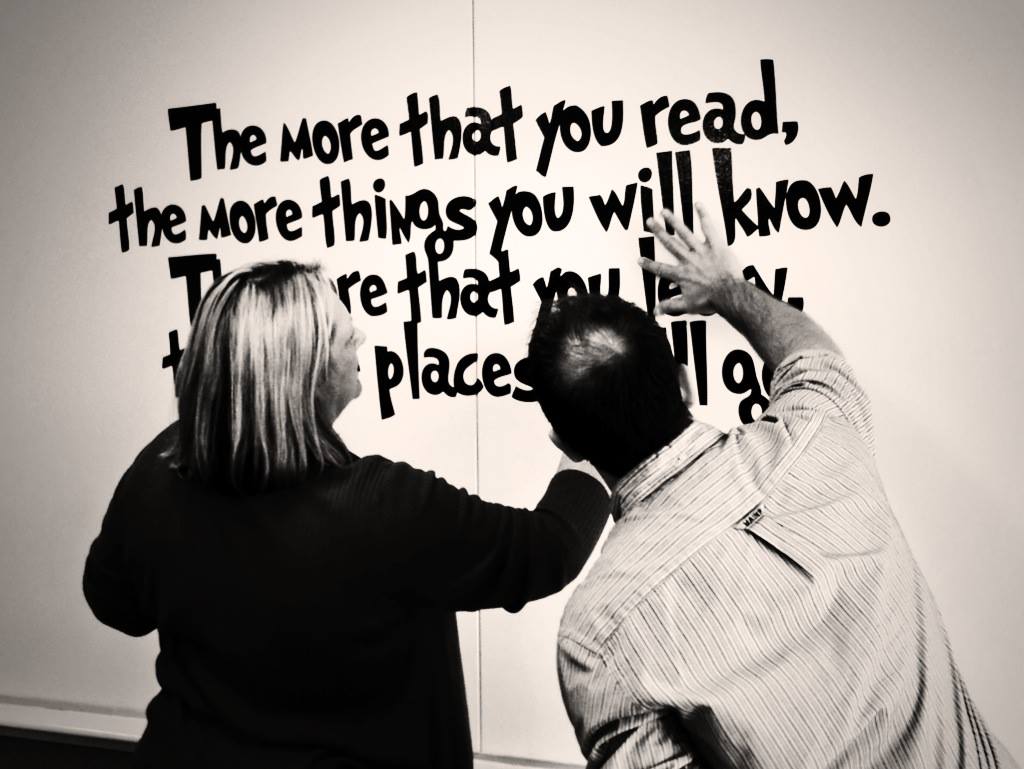 The more that you read,
the more things you will know.
that you
places go